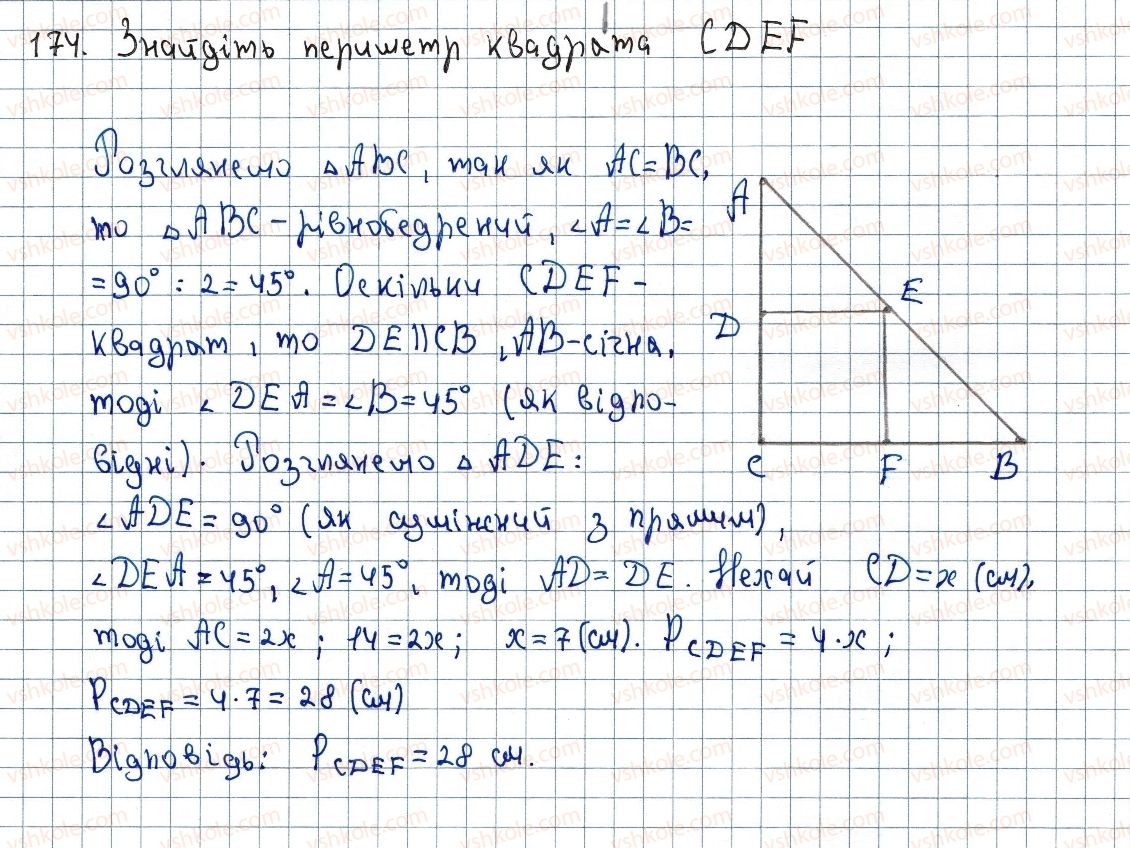 174. Знайдіть периметр квадрата CDEF
Розглянемо △ABC, так як AC=BC,
то △ABC-рівнобедрений, ∠A=∠B=
=90°:2=45°. Оскільки CDEF-
квадрат, то DE||CB, AB-січна,
тоді ∠DEA=∠B=45° (як відпо-
відні). Розглянемо △ADE:
∠ADE=90° (як суміжний з прямим),
∠DEA=45°, ∠A=45°, тоді AD=DE. Нехай CD=x (см),
тоді AC=2x; 14=2x; x=7 (см). P_CDEF=4·x;
P_CDEF=4·7=28 (см)
Відповідь: P_CDEF=28 см.
A
E
D
C F B
vshkole.com